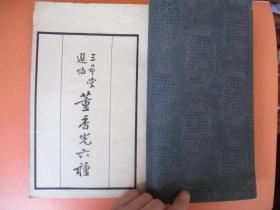 三希堂
選帖
董香光六種